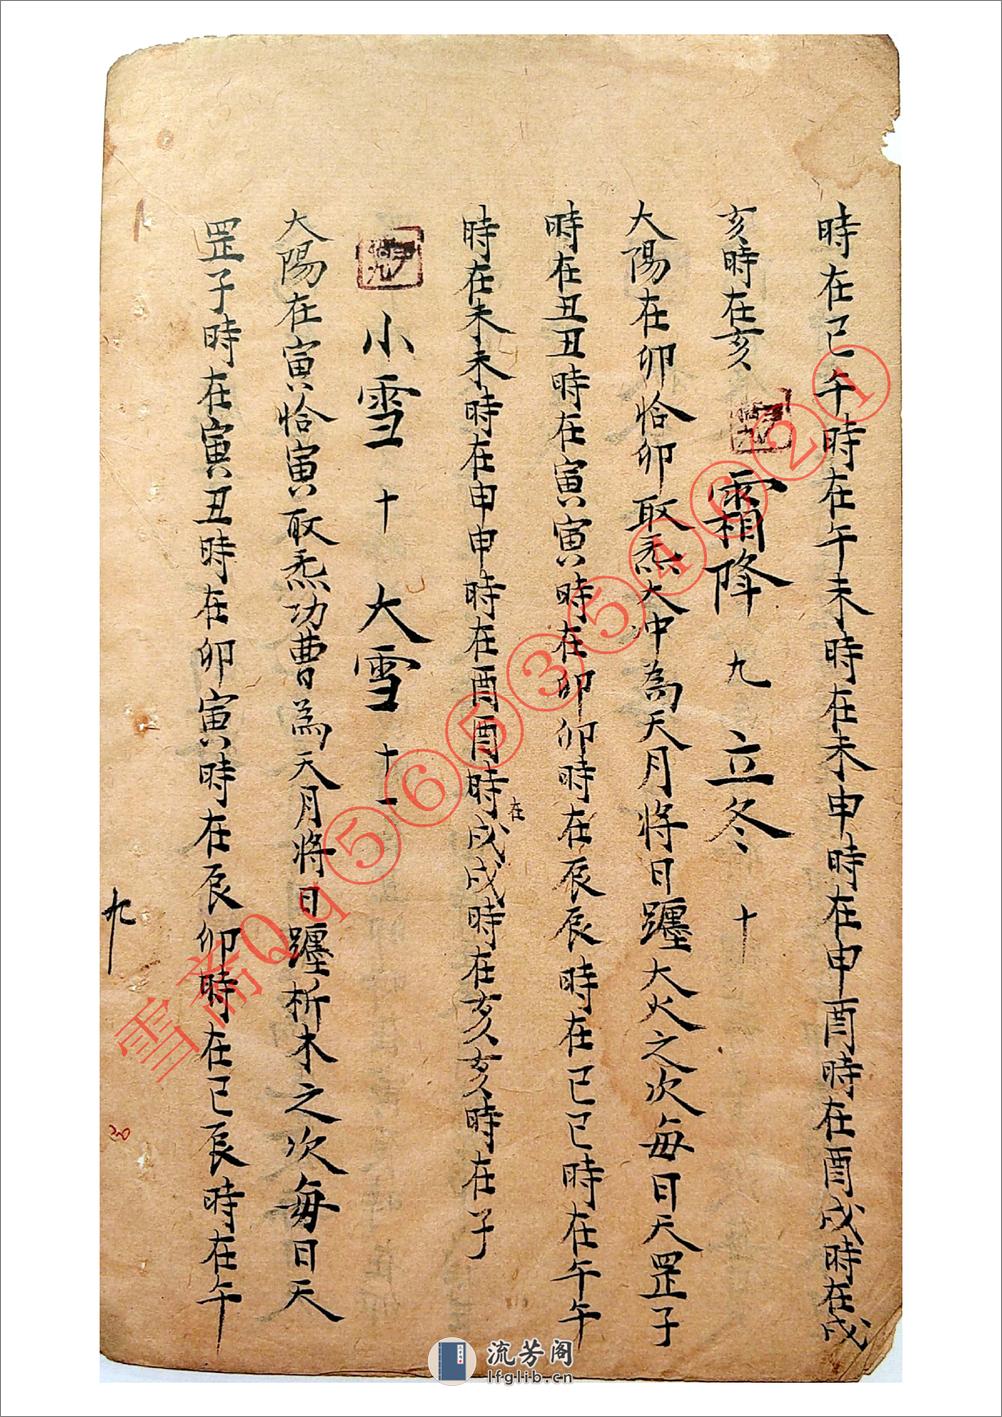 時在巳午時在午未時在未申時在申酉時在酉戌時在戌
亥時在亥
霜降 九 立冬 十
大陽在卯恰卯取炁大冲為天月將日躔大火之次每日天罡子
時在丑丑時在寅寅時在卯卯時在辰辰時在巳巳時在午午
時在未未時在申申時在酉酉時在戌戌時在亥亥時在子
小雪 十 大雪 十一
大陽在寅恰寅取炁功曹為天月將日躔析木之次每日天
罡子時在寅丑時在卯寅時在辰卯時在巳辰時在午
九
20
雪斋Qq⑤⑥⑤③⑤④⑥②①
流芳阁
lfglib.cn